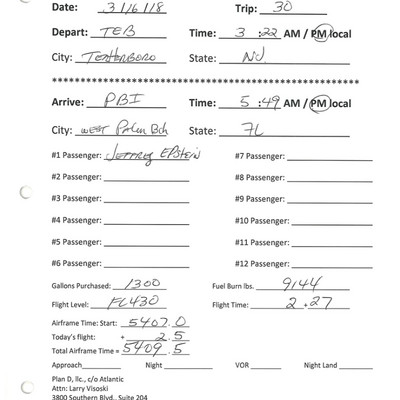 Date: 3/6/18 Trip: 30
Depart: TEB Time: 3:22 AM / PM local
City: Teterboro State: NJ
************************************************************
Arrive: PBI Time: 5:49 AM / PM local
City: West Palm Bch State: FL
#1 Passenger: Jeffrey Epstein #7 Passenger:
#2 Passenger: #8 Passenger:
#3 Passenger: #9 Passenger:
#4 Passenger: #10 Passenger:
#5 Passenger: #11 Passenger:
#6 Passenger: #12 Passenger:
Gallons Purchased: 1300 Fuel Burn lbs. 9144
Flight Level: FL430 Flight Time: 2+27
Airframe Time: Start: 5407.0
Today's flight: + 2.5
Total Airframe Time = 5409.5
Approach Night VOR Night Land
Plan D, llc., c/o Atlantic
Attn: Larry Visoski
3800 Southern Blvd., Suite 204